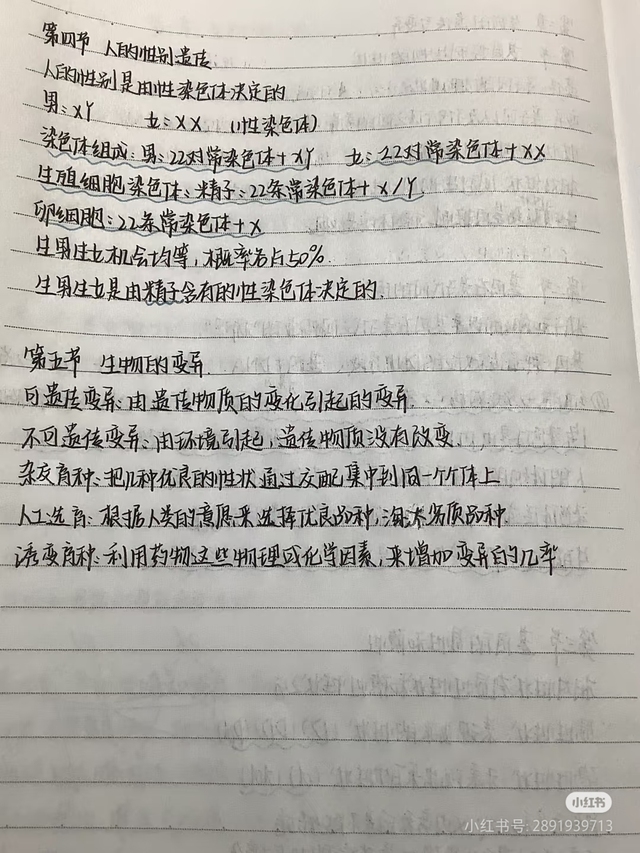 第四节 人的性别遗传
人的性别是由性染色体决定的
男:XY 女:XX (性染色体)
染色体组成:男:22对常染色体+XY 女:22对常染色体+XX
生殖细胞染色体:精子:22条常染色体+X/Y
卵细胞:22条常染色体+X
生男生女机会均等,概率各占50%.
生男生女是由精子含有的性染色体决定的.
第五节 生物的变异.
可遗传变异:由遗传物质的变化引起的变异.
不可遗传变异:由环境引起,遗传物质没有改变.
杂交育种:把几种优良的性状通过交配集中到同一个个体上
人工选育:根据人类的意愿来选择优良品种,淘汰劣质品种.
诱变育种:利用药物这些物理或化学因素,来增加变异的几率.
小红书
小红书号: 2891939713